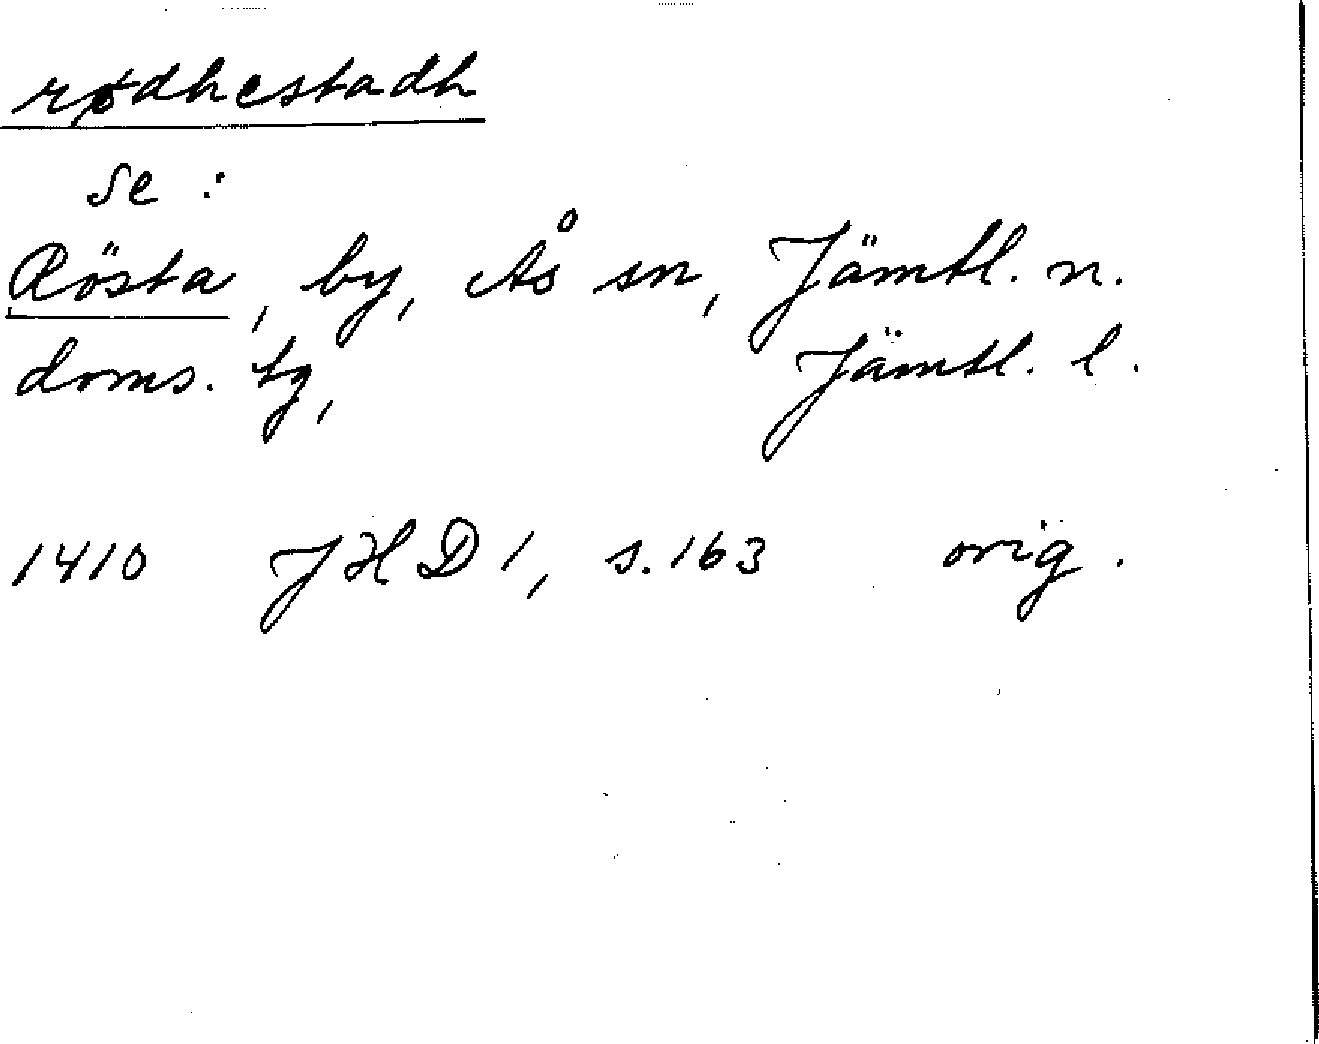 rødhestadh
se :
Rösta, by, Ås sn, Jämtl. n.
doms. tg, Jämtl. l.
1410 JHD 1, s. 163 orig.